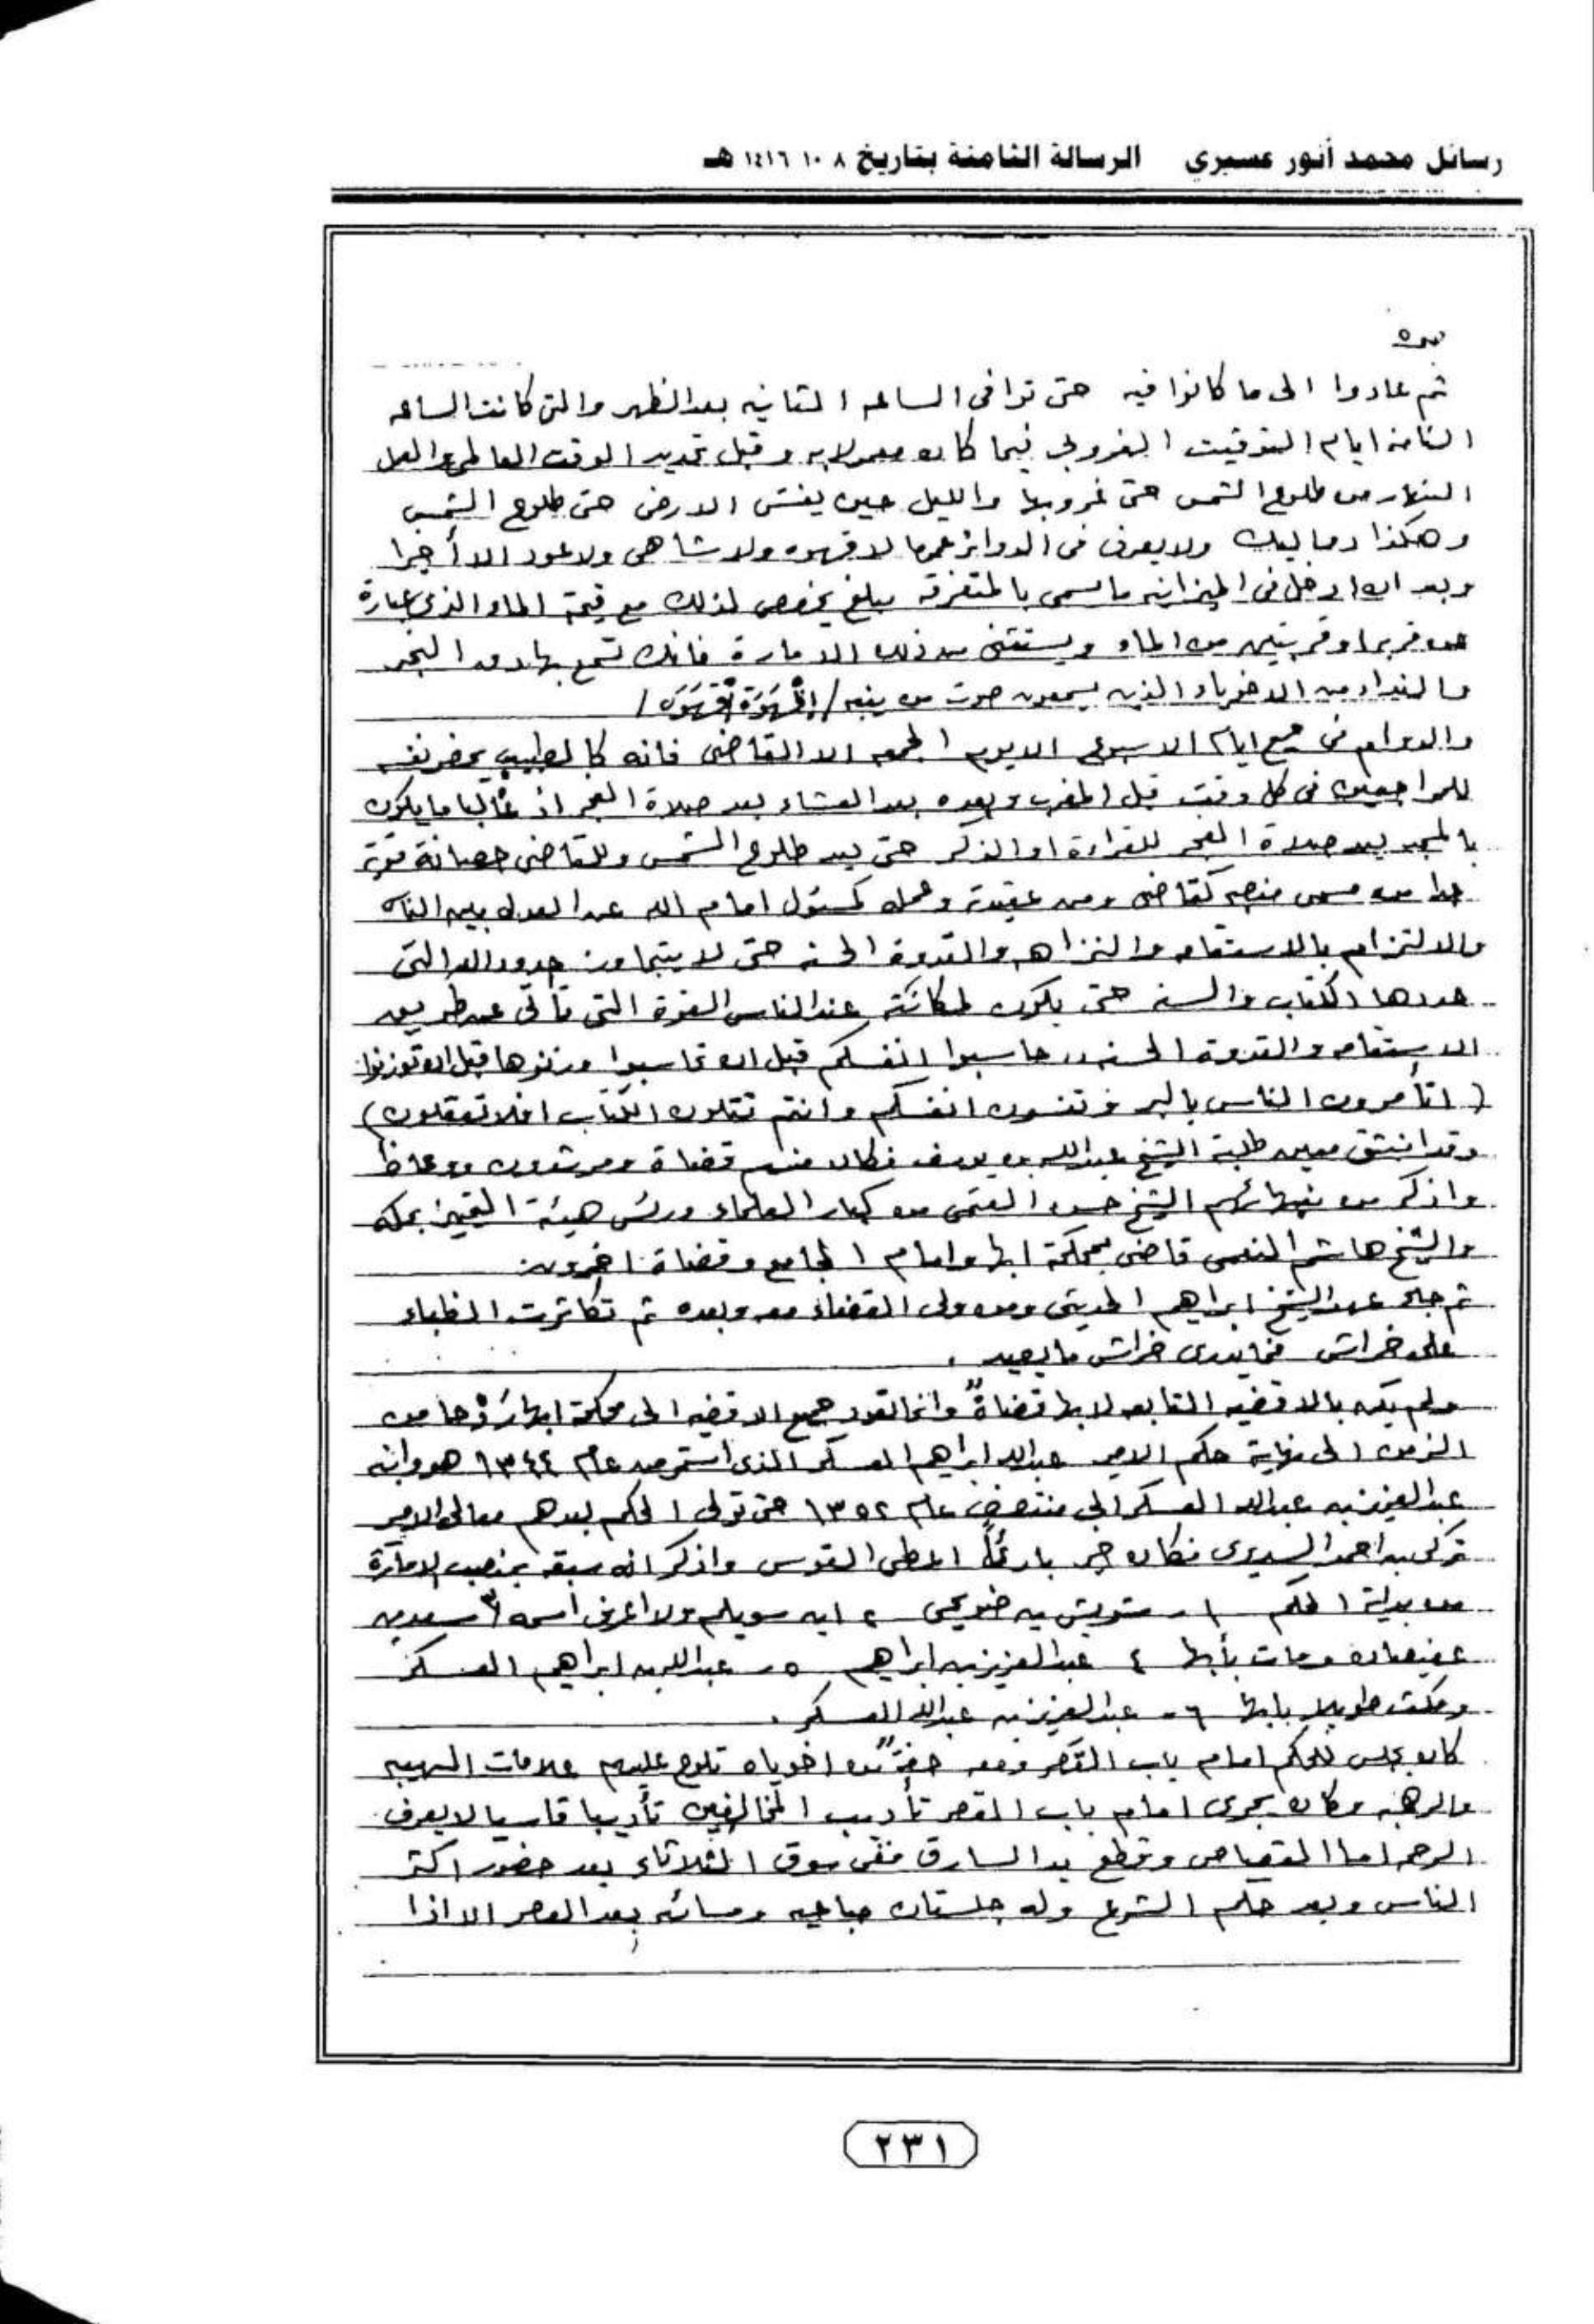 رسائل محمد أنور عسيري الرسالة الثامنة بتاريخ ٨ ١٠ ١٤١٦ هـ
ثم عادوا الى ما كانوا فيه حتى توافى الساعه الثانيه بعد الظهر والتى كانت الساعه
الثامنه ايام التوقيت الغروبي فيما كان معمولا به وقبل تحديد الوقت العالمى والعمل
النهار من طلوع الشمس حتى غروبها والليل حين يغشى الارض حتى طلوع الشمس
وهكذا دواليك ولا يعرف فى الدوائر عموما لا قهوه ولا شاهى ولا عود الا أخيرا
وبعد ان ادخل فى الميزانيه ما يسمى بالمتفرقه مبلغ يخصص لذلك مع قيمة الماء الذى عبارة
عن قربه او قربتين من الماء ويستثنى من ذلك الاماره فانك تسمع بها دق النجر
والنداء من الاخوياء الذين يسمعون صوت من ينبه / إقْهَوَة إقْهَوَه /
والدوام فى جميع ايام الاسبوع الا يوم الجمعه الا القاضى فانه كالطبيب يحضر نفسه
للمراجعين فى كل وقت قبل المغرب وبعده بعد العشاء بعد صلاة الفجر اذ غالبا ما يكون
بالمسجد بعد صلاة الفجر للقراءة او الذكر حتى بعد طلوع الشمس وللقاضى حصانة قويه
جدا من مسمى منصبه كقاضى ومن عقيدته وعمله كمسئول امام الله عن العدل بين الناس
والالتزام بالاستقامه والنزاهه والقدوة الحسنه حتى لا يتجاوز حدود الله التى
حددها الكتاب والسنه حتى يكون لمكانته عند الناس القوة التى تأتى عن طريق
الاستقامه والقدوة الحسنه ,, حاسبوا انفسكم قبل ان تحاسبوا وزنوها قبل ان توزنوا
( اتأمرون الناس بالبر وتنسون انفسكم وانتم تتلون الكتاب افلا تعقلون )
وقد انبثق من طلبة الشيخ عبدالله بن يوسف فكان منهم قضاة ومرشدون ووعاظ
واذكر من نبهائهم الشيخ حسن العتمى من كبار العلماء ورئس هيئة التمييز بمكه
والشيخ هاشم النعمى قاضى بمحكمة ابها وامام الجامع وقضاة اخرون
ثم جاء عهد الشيخ ابراهيم الحديثى ومن ولى القضاء معه وبعده ثم تكاثرت الظباء
على خراش فما يدرى خراش ما يصيد .
ولم يكن بالاقضيه التابعه لابها قضاةً وانما تعود جميع الاقضيه الى محكمة ابها رَدْحا من
الزمن الى نهاية حكم الامير عبدالله ابراهيم العسكر الذى استمر من عام ١٣٤٤ هو وابنه
عبدالعزيز بن عبدالله العسكر الى منتصف عام ١٣٥٢ حتى تولى الحكم بعدهم معالى الامير
تركى بن احمد السديرى فكان خير بارئٍ اعطى القوس واذكر انه سبقه بمنصب الامارة
من بداية الحكم ١- شويش بن ضويحى ٢ ابن سويلم ولا اعرف اسمه ٣ سعد بن
عفيصان ومات بأبها ٤ عبدالعزيز بن ابراهيم ٥- عبدالله بن ابراهيم العسكر
ومكث طويلا بابها ٦- عبدالعزيز بن عبدالله العسكر .
كان يجلس للحكم امام باب القصر ومعه حفنةً من اخوياه تلوح عليهم علامات الهيبه
والرهبه وكان يجرى امام باب القصر تأديب المخالفين تأديبا قاسيا لا يعرف
الرحمه اما القصاص وقطع يد السارق ففى سوق الثلاثاء بعد حضور اكثر
الناس وبعد حكم الشرع وله جلستان صباحيه ومسائه بعد العصر الا اذا
٢٣١